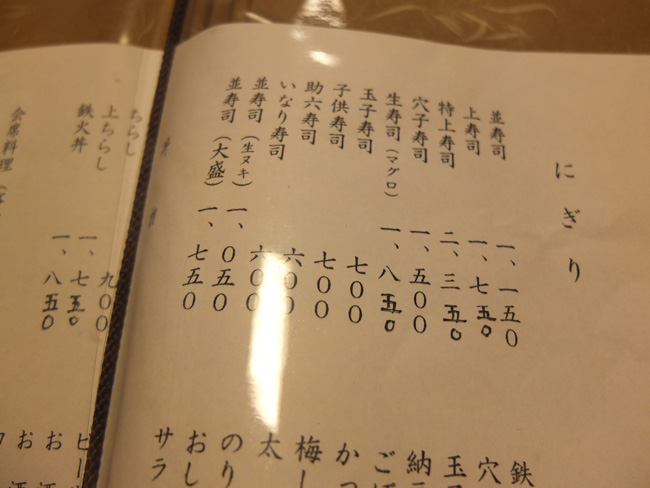 にぎり
並寿司 一、一五〇
上寿司 一、七五〇
特上寿司 二、三五〇
穴子寿司 一、五〇〇
生寿司(マグロ) 一、八五〇
玉子寿司 七〇〇
子供寿司 七〇〇
助六寿司 六〇〇
いなり寿司 六〇〇
並寿司(生ヌキ) 一、〇五〇
並寿司(大盛) 一、七五〇
鉄
穴
玉
納
ご
かつ
梅し
太
のり
おし
サラ
ちらし 九〇〇
上ちらし 一、七五〇
鉄火丼 一、八五〇
会席料理
ビー
お酒
お酒